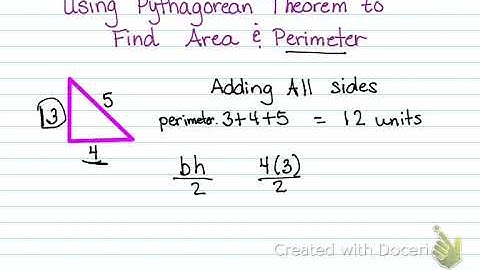 Using Pythagorean Theorem to
Find Area & Perimeter
Adding All sides
3
5
perimeter. 3+4+5 = 12 units
4
bh
2
4(3)
2
Created with Doceri